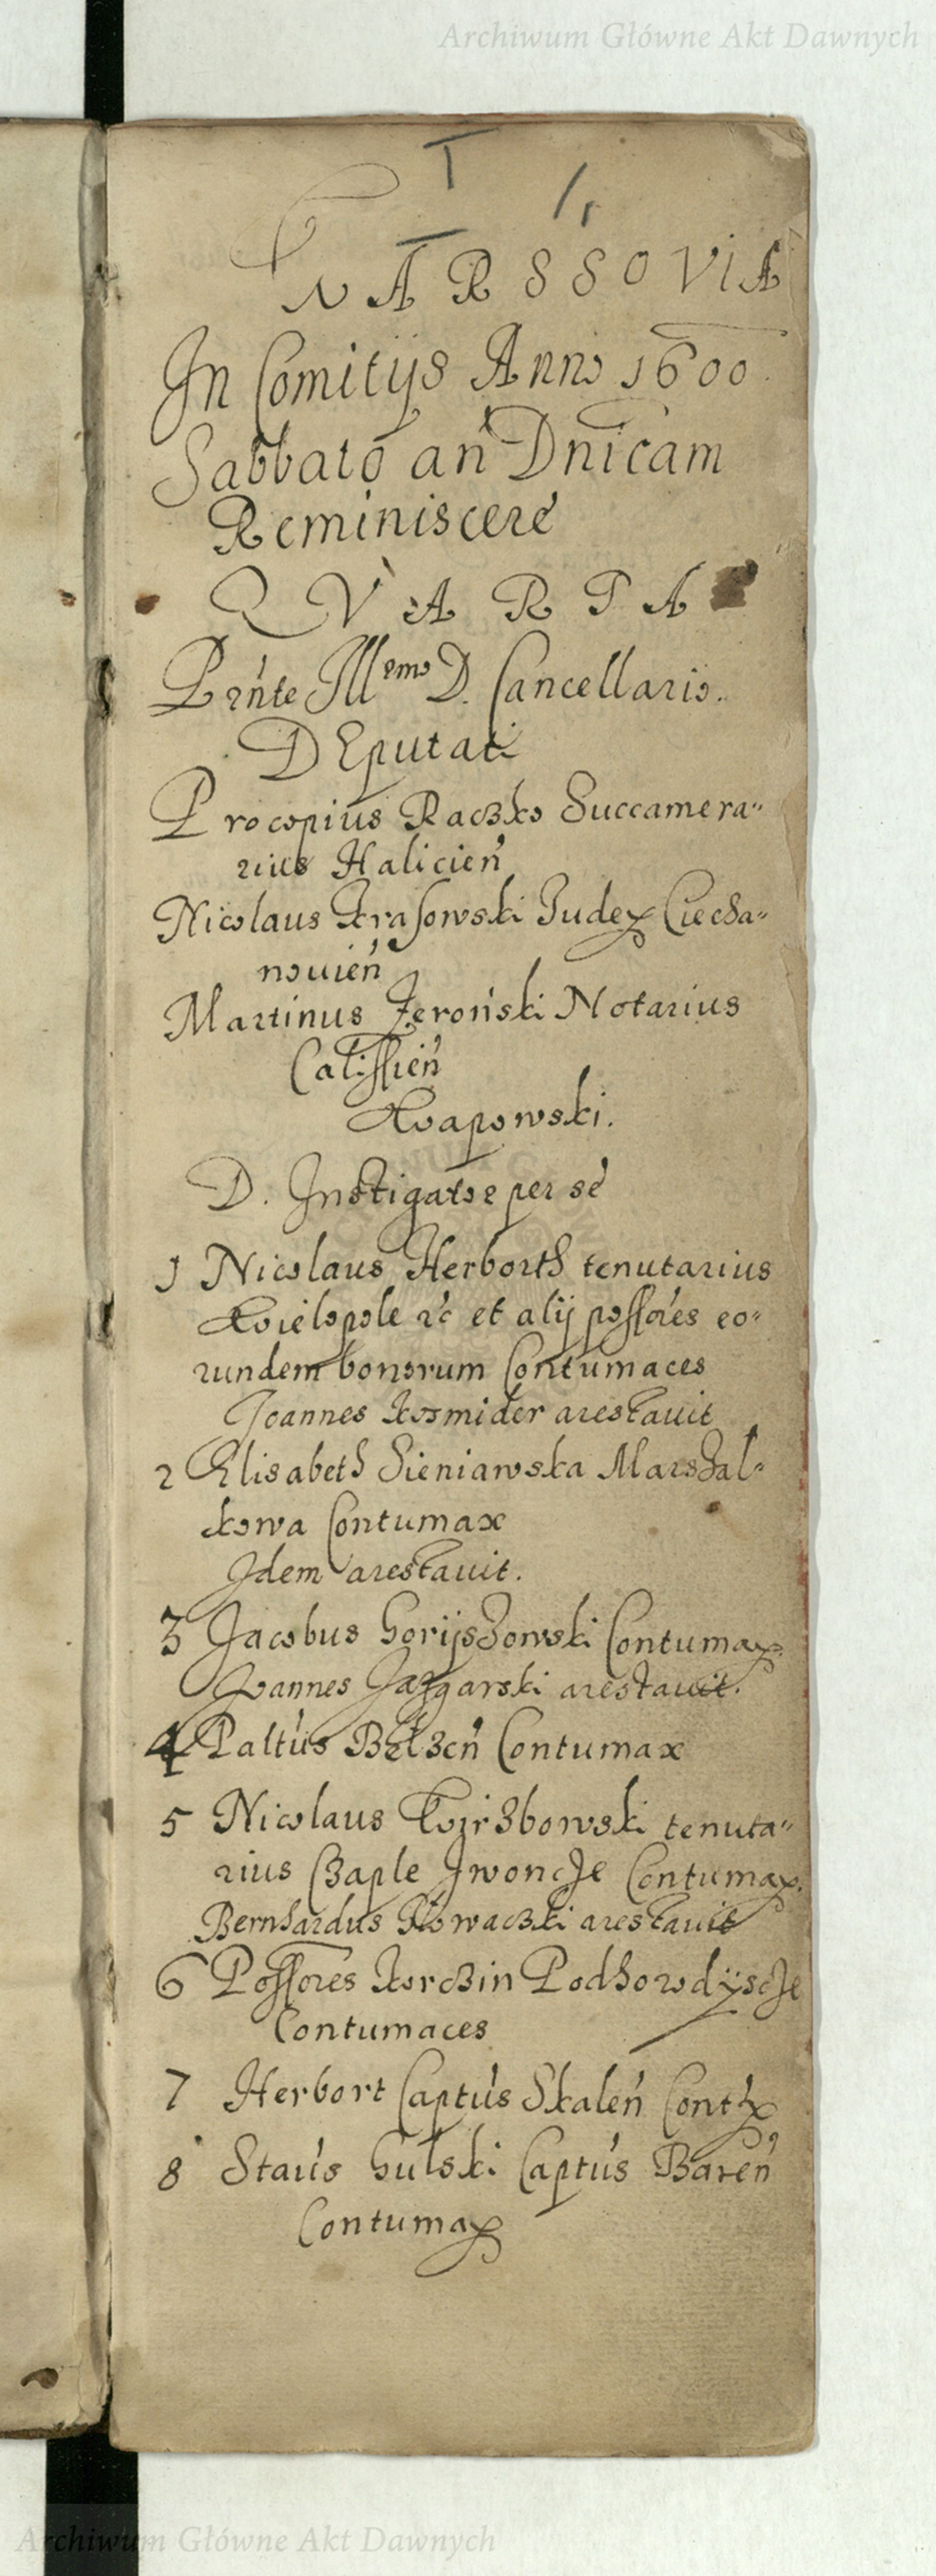 Archiwum Główne Akt Dawnych
I
1
WARSSOVIÆ
In Comitijs Anno 1600
Sabbato an Dnicam
Reminiscere
QVARTA
Prńte Illemo D. Cancellario.
DEputati
Procopius Raczko Succamera"
rius Halicień
Nicolaus Krasowski Judex Ciecha"
nouień
Martinus Zeroński Notarius
Calissień
Kwapowski.
D. Instigator per se
1 Nicolaus Herborth tenutarius
Wielopole ꝛc et alij possores eo"
rundem bonorum Contumaces
Joannes Kosmider arestauit
2 Elisabeth Sieniawska Marshal"
kowa Contumax
Idem arestauit.
3 Jacobus Goriishowski Contumax.
Joannes Jazgarski arestauit.
4 Paltús Belzeń Contumax
5 Nicolaus Wirzbowski tenuta"
rius Czaple Iwoncze Contumax.
Bernhardus Nowaczki arestauit
6 Possores Korczin Podhorodÿscze
Contumaces
7 Herbort Captús Skaleń Contx
8 Staús Gulski Captús Bareń
Contumax
Archiwum Główne Akt Dawnych